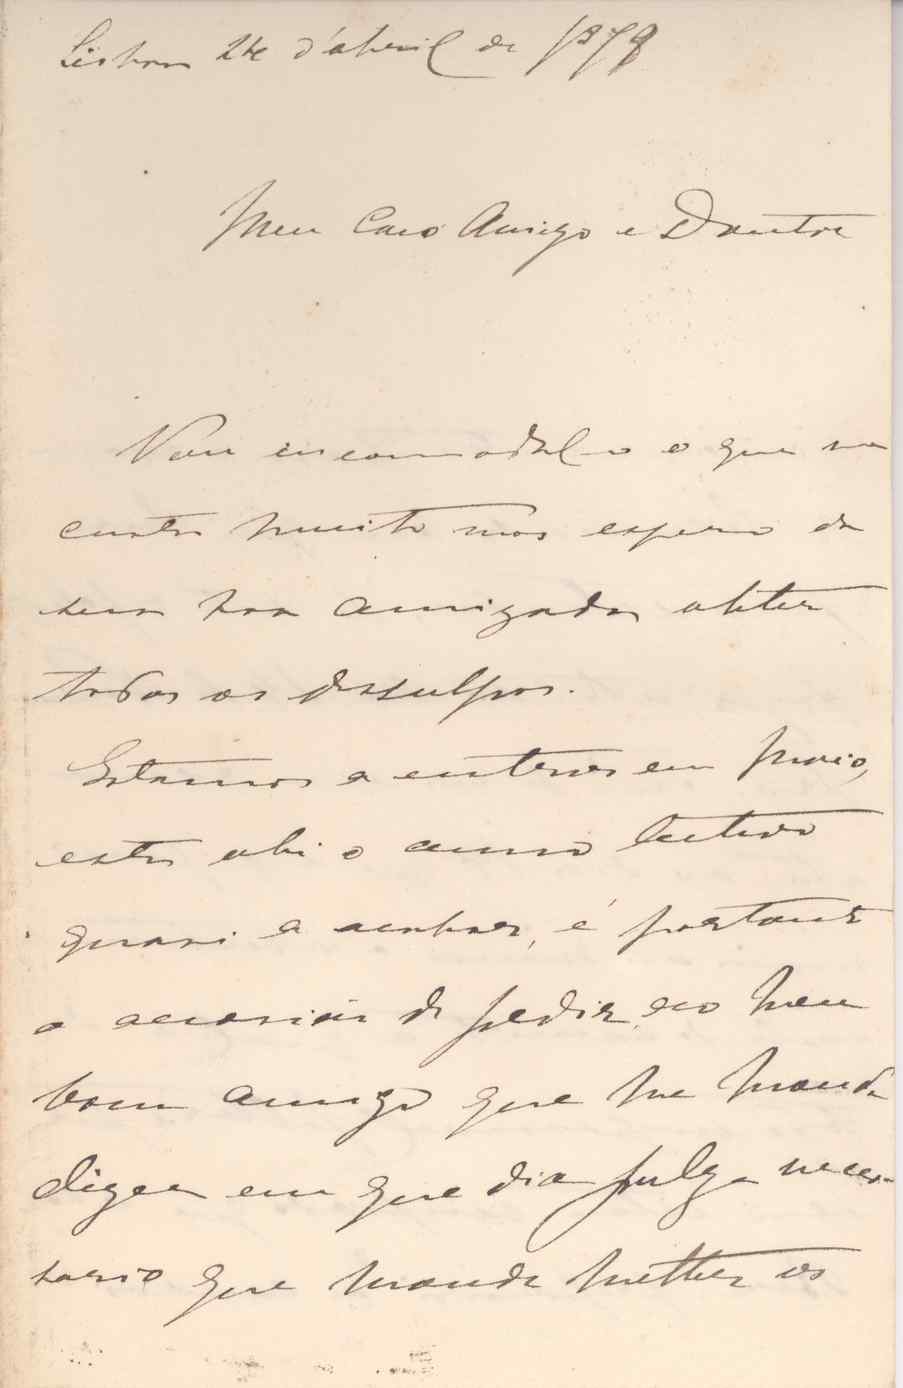 Lisboa 24 d'abril de 1879
Meu Caro Amigo e Doutor
Vou incomodal-o o que me
custa muito mas espero da
sua boa amizade obter
todas as desculpas.
Estamos a entrar em Maio,
está ahi o anno lectivo
quasi a acabar, é portanto
a occasião de pedir ao meu
bom amigo que me mande
dizer em que dia julga neces-
sario que mande metter os